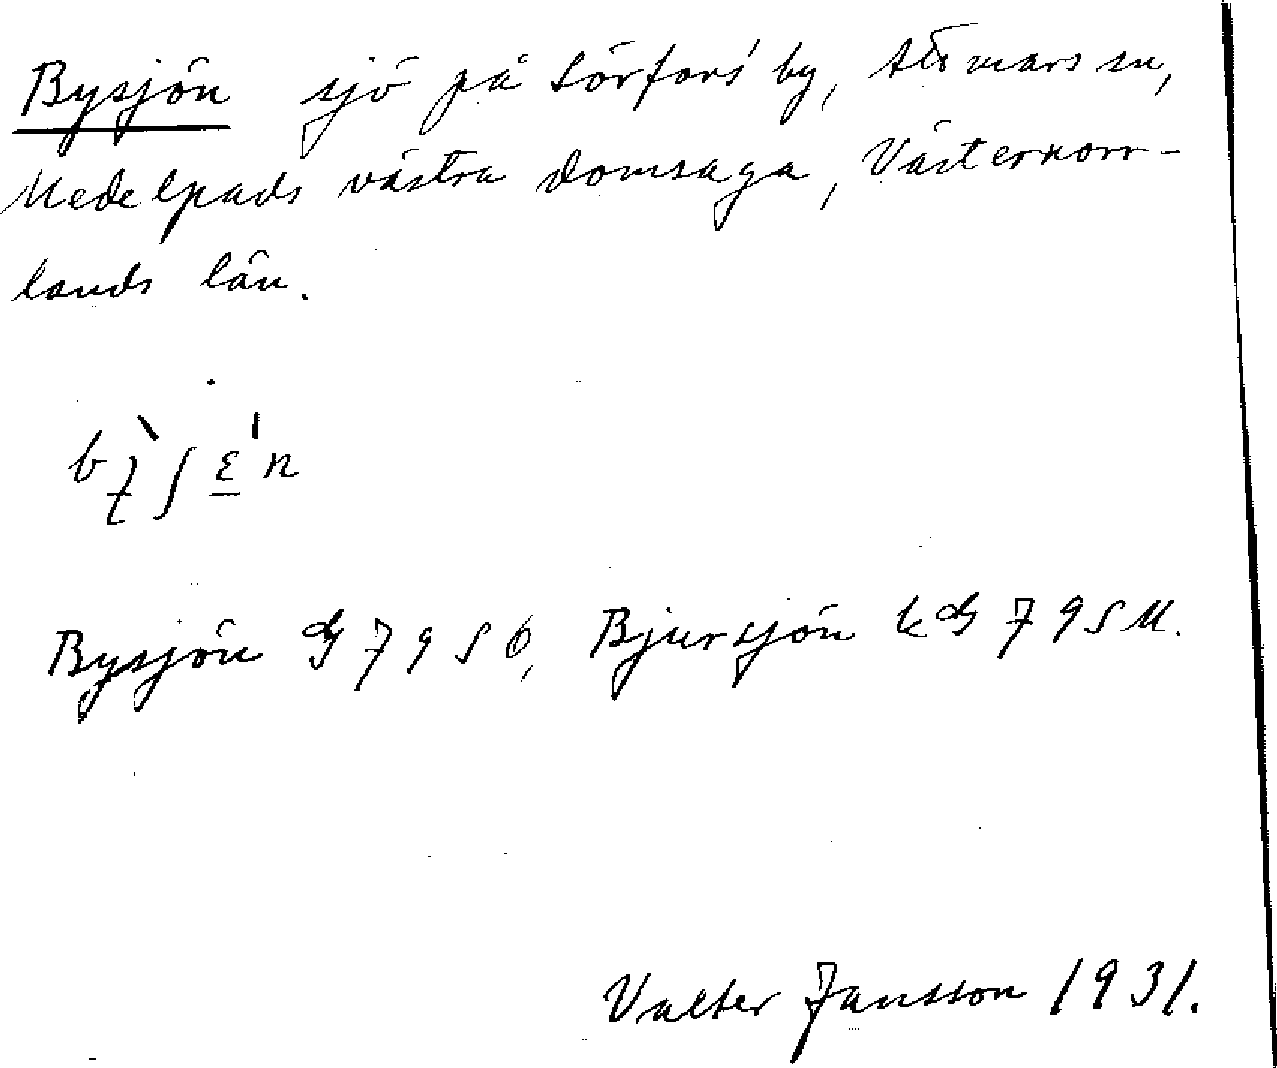 Bysjön sjö på Sörfors by, Attmars sn,
Medelpads västra domsaga, Västernorr-
lands län.
Bysjön Bjursjön
Valter Jansson 1931.